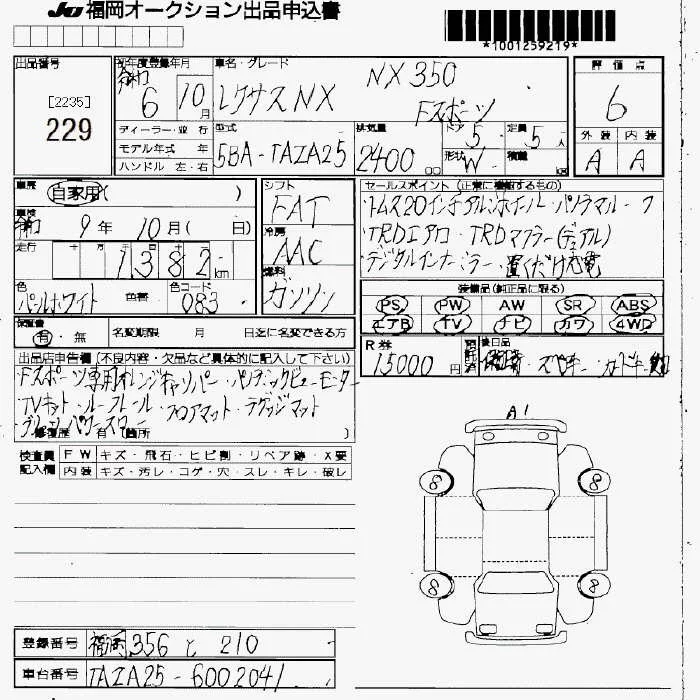 JU 福岡オークション出品申込書
*1001259219*
出品番号
[2235]
229
初年度登録年月
令和 6 年 10 月
車名・グレード
レクサスNX
NX 350
Fスポーツ
評価点
6
外装 内装
A A
ディーラー・並行
モデル年式 年
ハンドル 左・右
型式
5BA-TAZA25
排気量
2400 CC
ドア 5
形状 W
定員 5 人
積載 KG
車歴
自家用( )
車検
令和 9 年 10 月( 日)
走行
十 万 千 百 十
1382 km
色
パールホワイト 色替
色コード
083
シフト
FAT
冷房
AAC
燃料
ガソリン
セールスポイント (正常に機能するもの)
・トムス20インチアルミホイール・パノラマルーフ
・TRDエアロ・TRDマフラー(デュアル)
・デジタルインナーミラー・置くだけ充電
装備品(純正品に限る)
PS PW AW SR ABS
エアB TV ナビ カワ 4WD
保証書
有・無
名変期限 月 日迄に名変できる方
R券
15000 円
預託済
後日品
・スペキー・カードキー
出品店申告欄 (不良内容・欠品など具体的に記入して下さい)
・Fスポーツ専用オレンジキャリパー・パノラミックビューモニター
・TVキット・ルーフレール・フロアマット・ラゲッジマット
パワースラー
修復歴 有 (箇所 )
検査員記入欄
FW キズ・飛石・ヒビ割・リペア跡・X要
内装 キズ・汚レ・コゲ・穴・スレ・キレ・破レ
A1
8 8
8 8
登録番号 福岡 356 と 210
車台番号 TAZA25-6002041